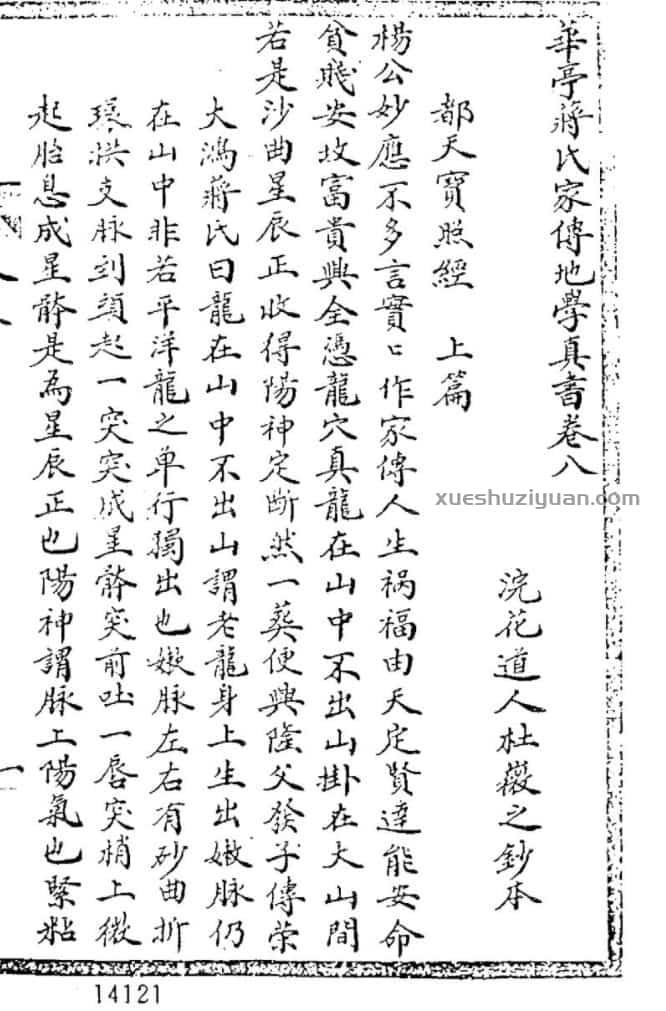 華亭蔣氏家傳地學真書卷八
浣花道人杜薇之鈔本
都天寶照經 上篇
楊公妙應不多言實ㄑ作家傳人生禍福由天定賢達能安命
貧賤安坟富貴興全憑龍穴真龍在山中不出山掛在大山間
若是沙曲星辰正收得陽神定斷然一葬便興隆父發子傳荣
大鴻蔣氏曰龍在山中不出山謂老龍身上生出嫩脉仍
在山中非若平洋龍之单行獨出也嫩脉左右有砂曲折
環拱支脉到頭起一突突成星骵突前吐一唇突梢上微
起胎息成星骵是為星辰正也陽神謂脉上陽氣也緊粘
一
14121
xueshuziyuan.com